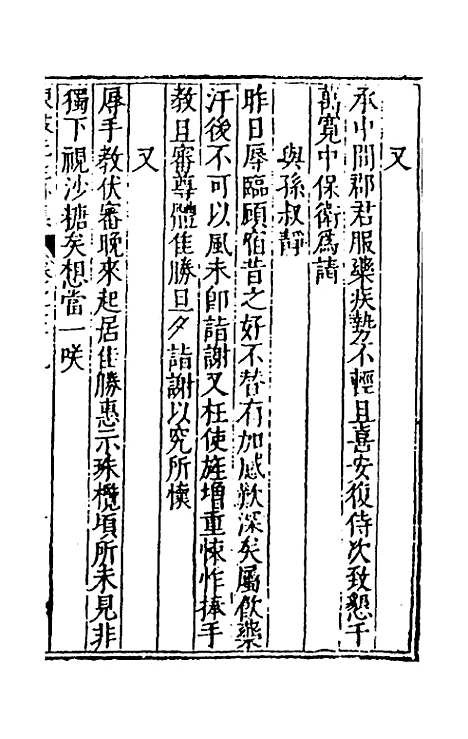 又
承中間郡君服藥疾勢不輕且喜安復侍次致懇千
萬寬中保衛爲請
與孫叔靜
昨日辱臨顧宿昔之好不替有加感歎深矣屬飲藥
汗後不可以風未即詣謝又枉使旌增重悚怍捧手
教且審尊體佳勝旦夕詣謝以究所懷
又
辱手教伏審晚來起居佳勝惠示珠欖頃所未見非
獨下視沙糖矣想當一咲